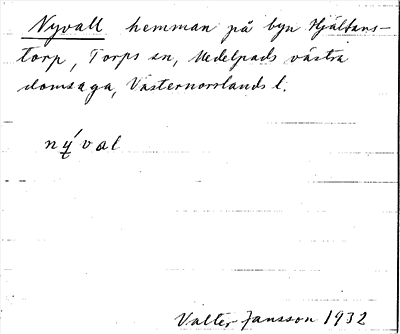 Nyvall hemman på byn Hjältans-
torp, Torps sn, Medelpads västra
domsaga, Västernorrlands l.
nýval
Valter Jansson 1932